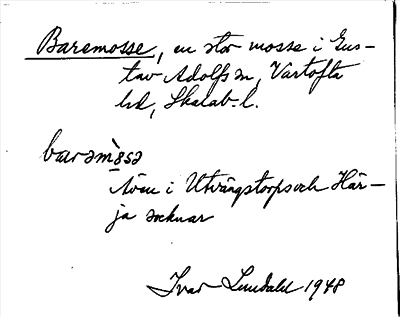 Baremosse, en stor mosse i Gus-
tav Adolfs sn, Vartofta
hd, Skarab. l.
barəm`ɵsə
Även i Utvängstorps och Här-
ja socknar
Ivar Lundahl 1948